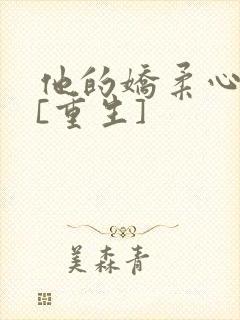 他的娇柔心
[重生]
美森青